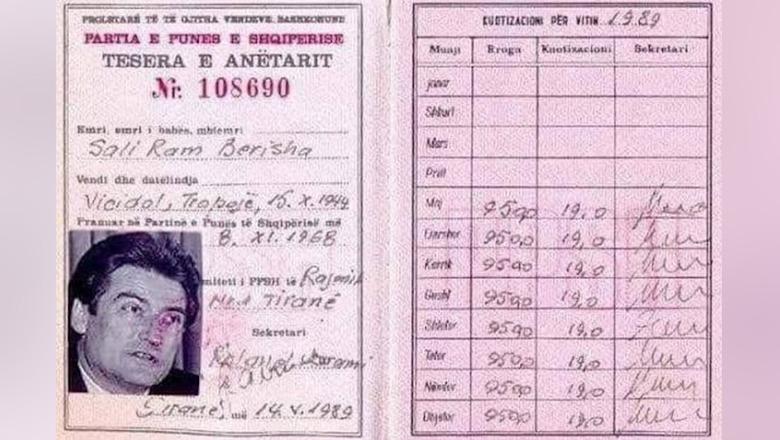 PROLETARË TË TË GJITHA VENDEVE, BASHKOHUNI
PARTIA E PUNES E SHQIPERISE
TESERA E ANËTARIT
Nr. 108690
Emri, emri i babës, mbiemri
Sali Ram Berisha
Vendi dhe datëlindja
Viçidol, Tropojë, 15.X.1944
Pranuar në Partinë e Punës të Shqipërisë më
8. XI. 1968
miteti i PPSH të Rajonit
Nr. 1 Tiranë
Sekretari
Tiranë, më 14.V.1989
KUOTIZACIONI PËR VITIN 1989
Muaji Rroga Kuotizacioni Sekretari
Janar
Shkurt
Mars
Prill
Maj 950,0 19,0
Qershor 950,0 19,0
Korrik 950,0 19,0
Gusht 950,0 19,0
Shtator 950,0 19,0
Tetor 950,0 19,0
Nëndor 950,0 19,0
Dhjetor 950,0 19,0